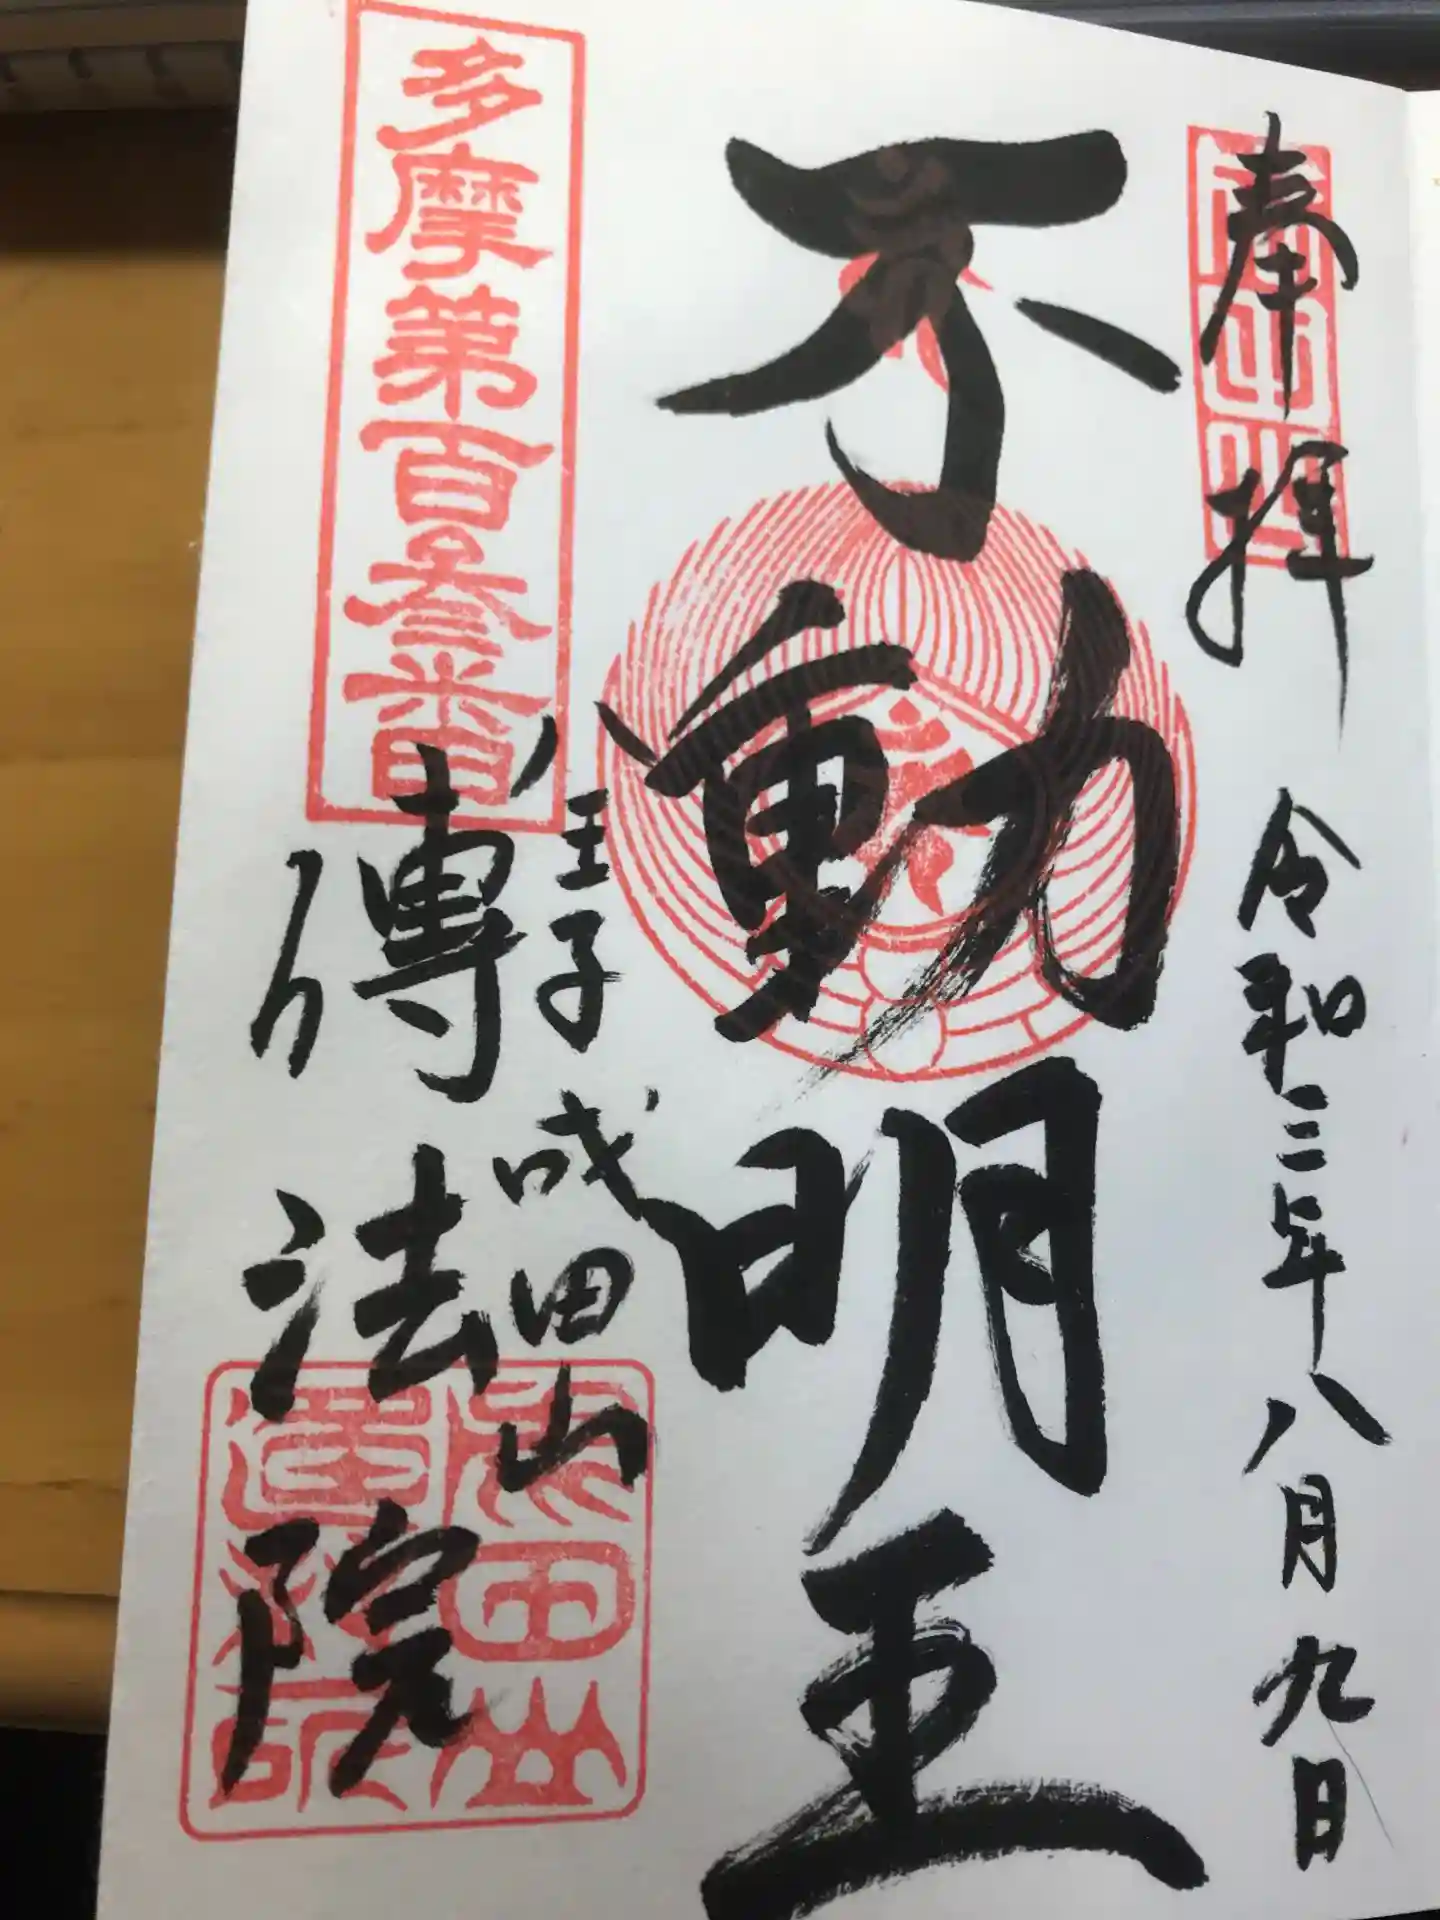 奉拝
令和三年八月九日
不動明王
八王子成田山
傳法院
多摩第百参番